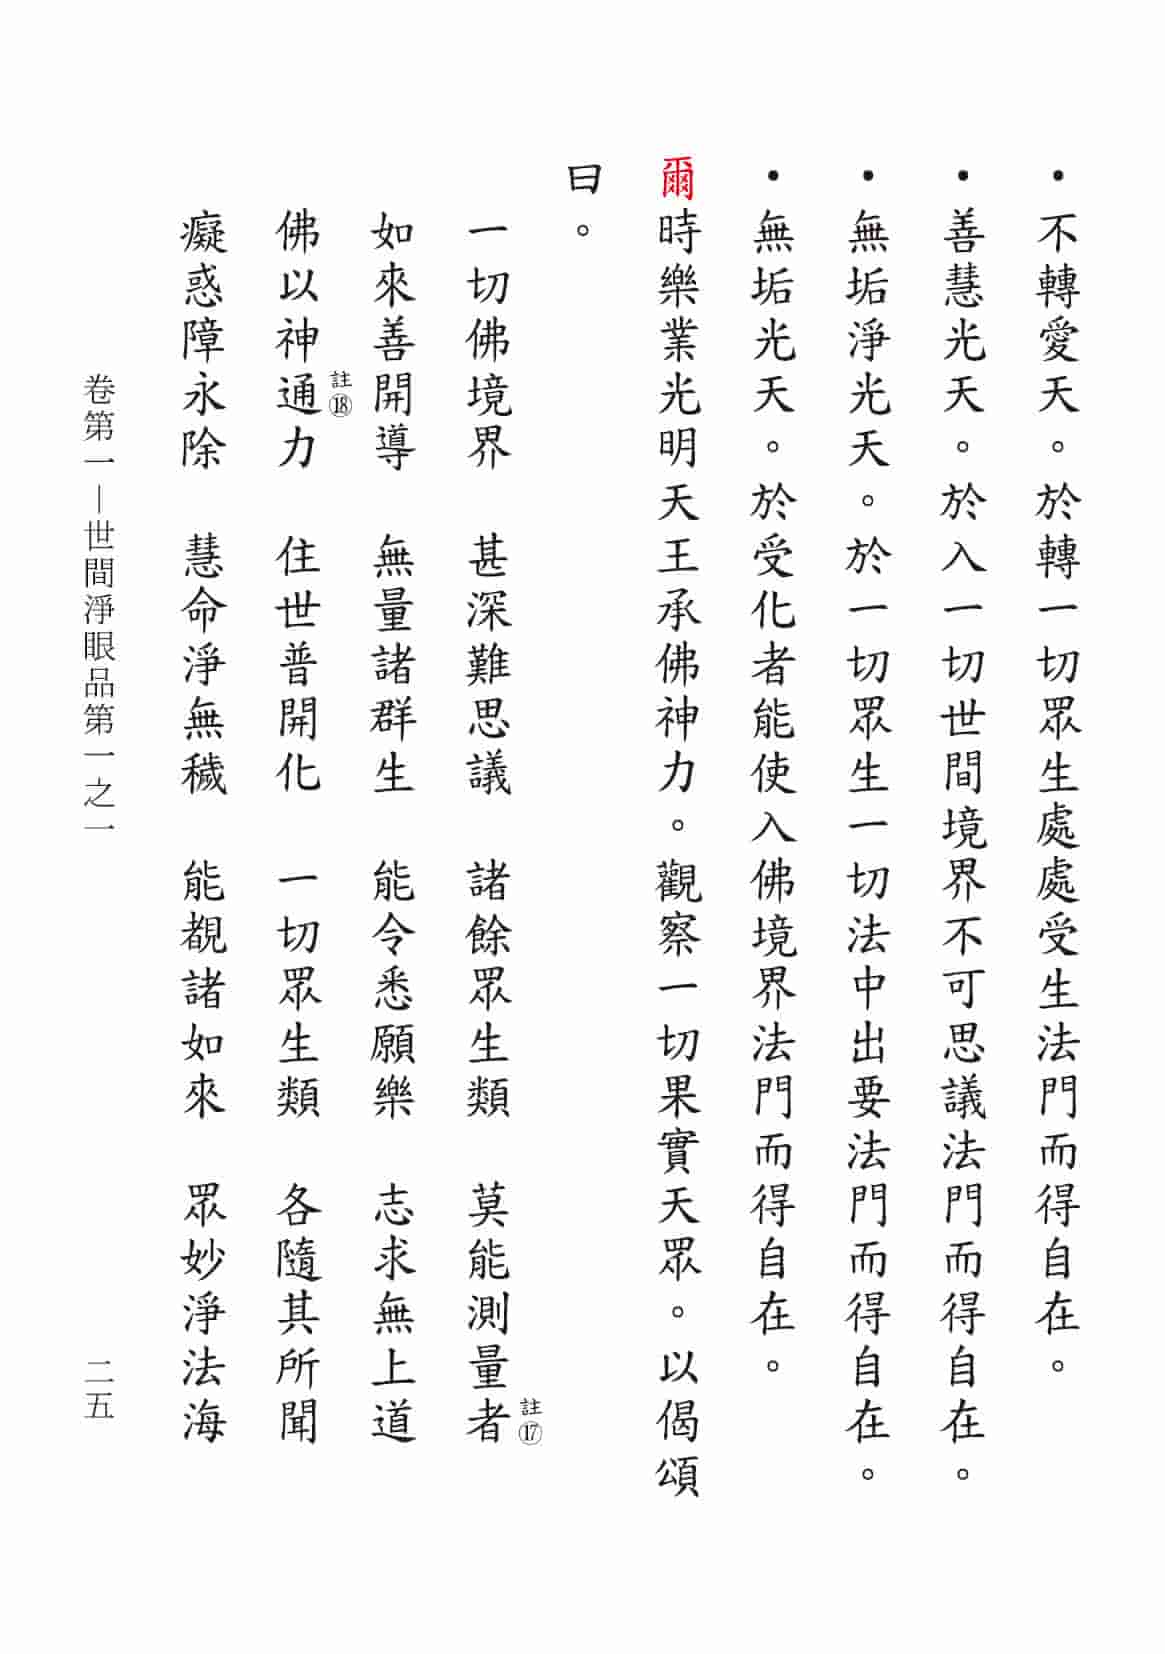 •不轉愛天。於轉一切眾生處處受生法門而得自在。
•善慧光天。於入一切世間境界不可思議法門而得自在。
•無垢淨光天。於一切眾生一切法中出要法門而得自在。
•無垢光天。於受化者能使入佛境界法門而得自在。
爾時樂業光明天王承佛神力。觀察一切果實天眾。以偈頌
曰。
一切佛境界　甚深難思議　諸餘眾生類　莫能測量者註⑰
如來善開導　無量諸群生　能令悉願樂　志求無上道
佛以神通註⑱力　住世普開化　一切眾生類　各隨其所聞
癡惑障永除　慧命淨無穢　能覩諸如來　眾妙淨法海
卷第一—世間淨眼品第一之一
二五